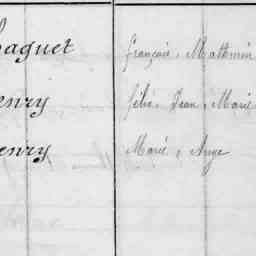 haguet François, Mathurin
enry félix, Jean, Marie
enry Marie, Ange